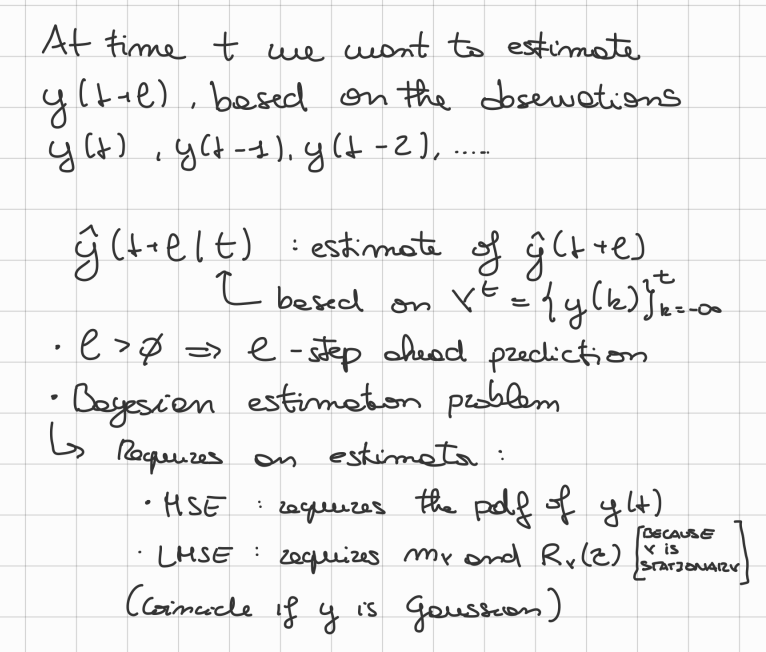 At time t we want to estimate
y(t+l), based on the observations
y(t), y(t-1), y(t-2), .....
ŷ(t+l|t) : estimate of ŷ(t+l)
based on Y^t = {y(k)}_{k=-∞}^t
· l > ∅ ⇒ l-step ahead prediction
· Bayesian estimation problem
↳ Requires an estimator :
· MSE : requires the pdf of y(t)
· LMSE : requires m_Y and R_Y(τ) [BECAUSE
Y IS
STATIONARY]
(Coincide if y is Gaussian)